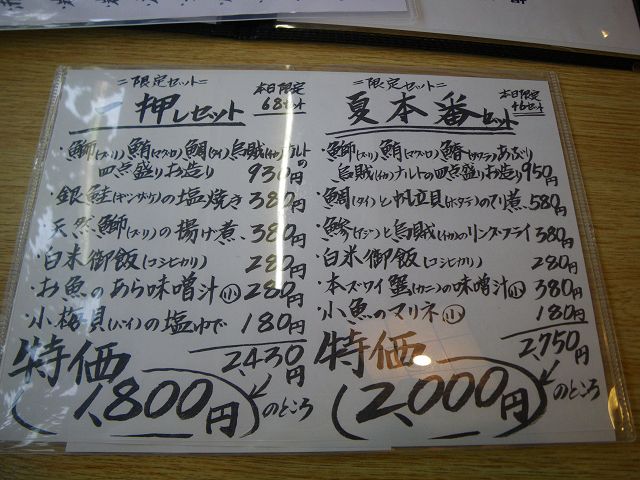 =限定セット=
本日限定
68セット
一押しセット
・鰤(ブリ)鮪(マグロ)鯛(タイ)烏賊(イカ)ナルト
四点盛りお造り 930円
・銀鮭(ギンザケ)の塩焼き 380円
・天然鰤(ブリ)の揚げ煮 380円
・白米御飯(コシヒカリ) 280円
・お魚のあら味噌汁小 280円
・小梅貝(バイ)の塩ゆで 180円
2,430円
のところ
特価
1,800円
=限定セット=
本日限定
46セット
夏本番セット
・鰤(ブリ)鮪(マグロ)鰆(サワラ)あぶり
烏賊(イカ)ナルトの四点盛りお造り 950円
・鯛(タイ)と帆立貝(ホタテ)のてり煮 580円
・鯵(アジ)と烏賊(イカ)のリングフライ 380円
・白米御飯(コシヒカリ) 280円
・本ズワイ蟹(カニ)の味噌汁小 380円
・小魚のマリネ小 180円
2,750円
のところ
特価
2,000円